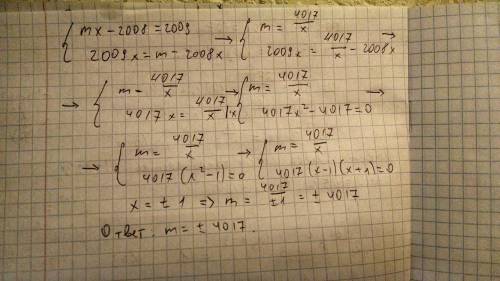 { mx - 2008 = 2009
2009x = m - 2008x → { m = 4017/x
2009x = 4017/x - 2008x →
→ { m = 4017/x
4017x = 4017/x |·x → { m = 4017/x
4017x² - 4017 = 0 →
→ { m = 4017/x
4017(x² - 1) = 0 → { m = 4017/x
4017(x-1)(x+1) = 0
x = ± 1 => m = 4017/±1 = ± 4017
Ответ: m = ± 4017.